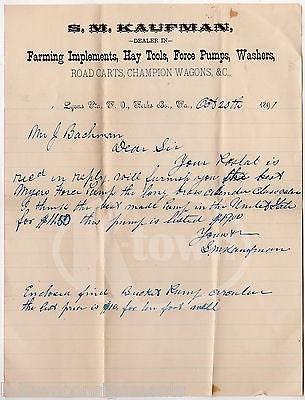 S. M. KAUFMAN,
DEALER IN
Farming Implements, Hay Tools, Force Pumps, Washers,
ROAD CARTS, CHAMPION WAGONS, &C.,
Lyons Sta. P. O., Berks Co., Pa., Oct 20th 1891
Mr J Bachman
Dear Sir
Your Postal is
recd in reply will furnish you the best
Myers Force Pump the long brass
I think the best made Pump in the United State
for $11.50 this pump is listed $19.00
Yours
S M Kaufman
Enclosed find Bucket Pump circular
the best price is $ for ten foot well